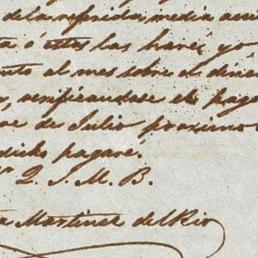 de la referida media acc
a ó estas las hares yo
nto al mes sobre el dine
, verificandose el pago
re de Julio procsimo
dicho pagaré.
Q. S. M. B.
a Martinez del Rio